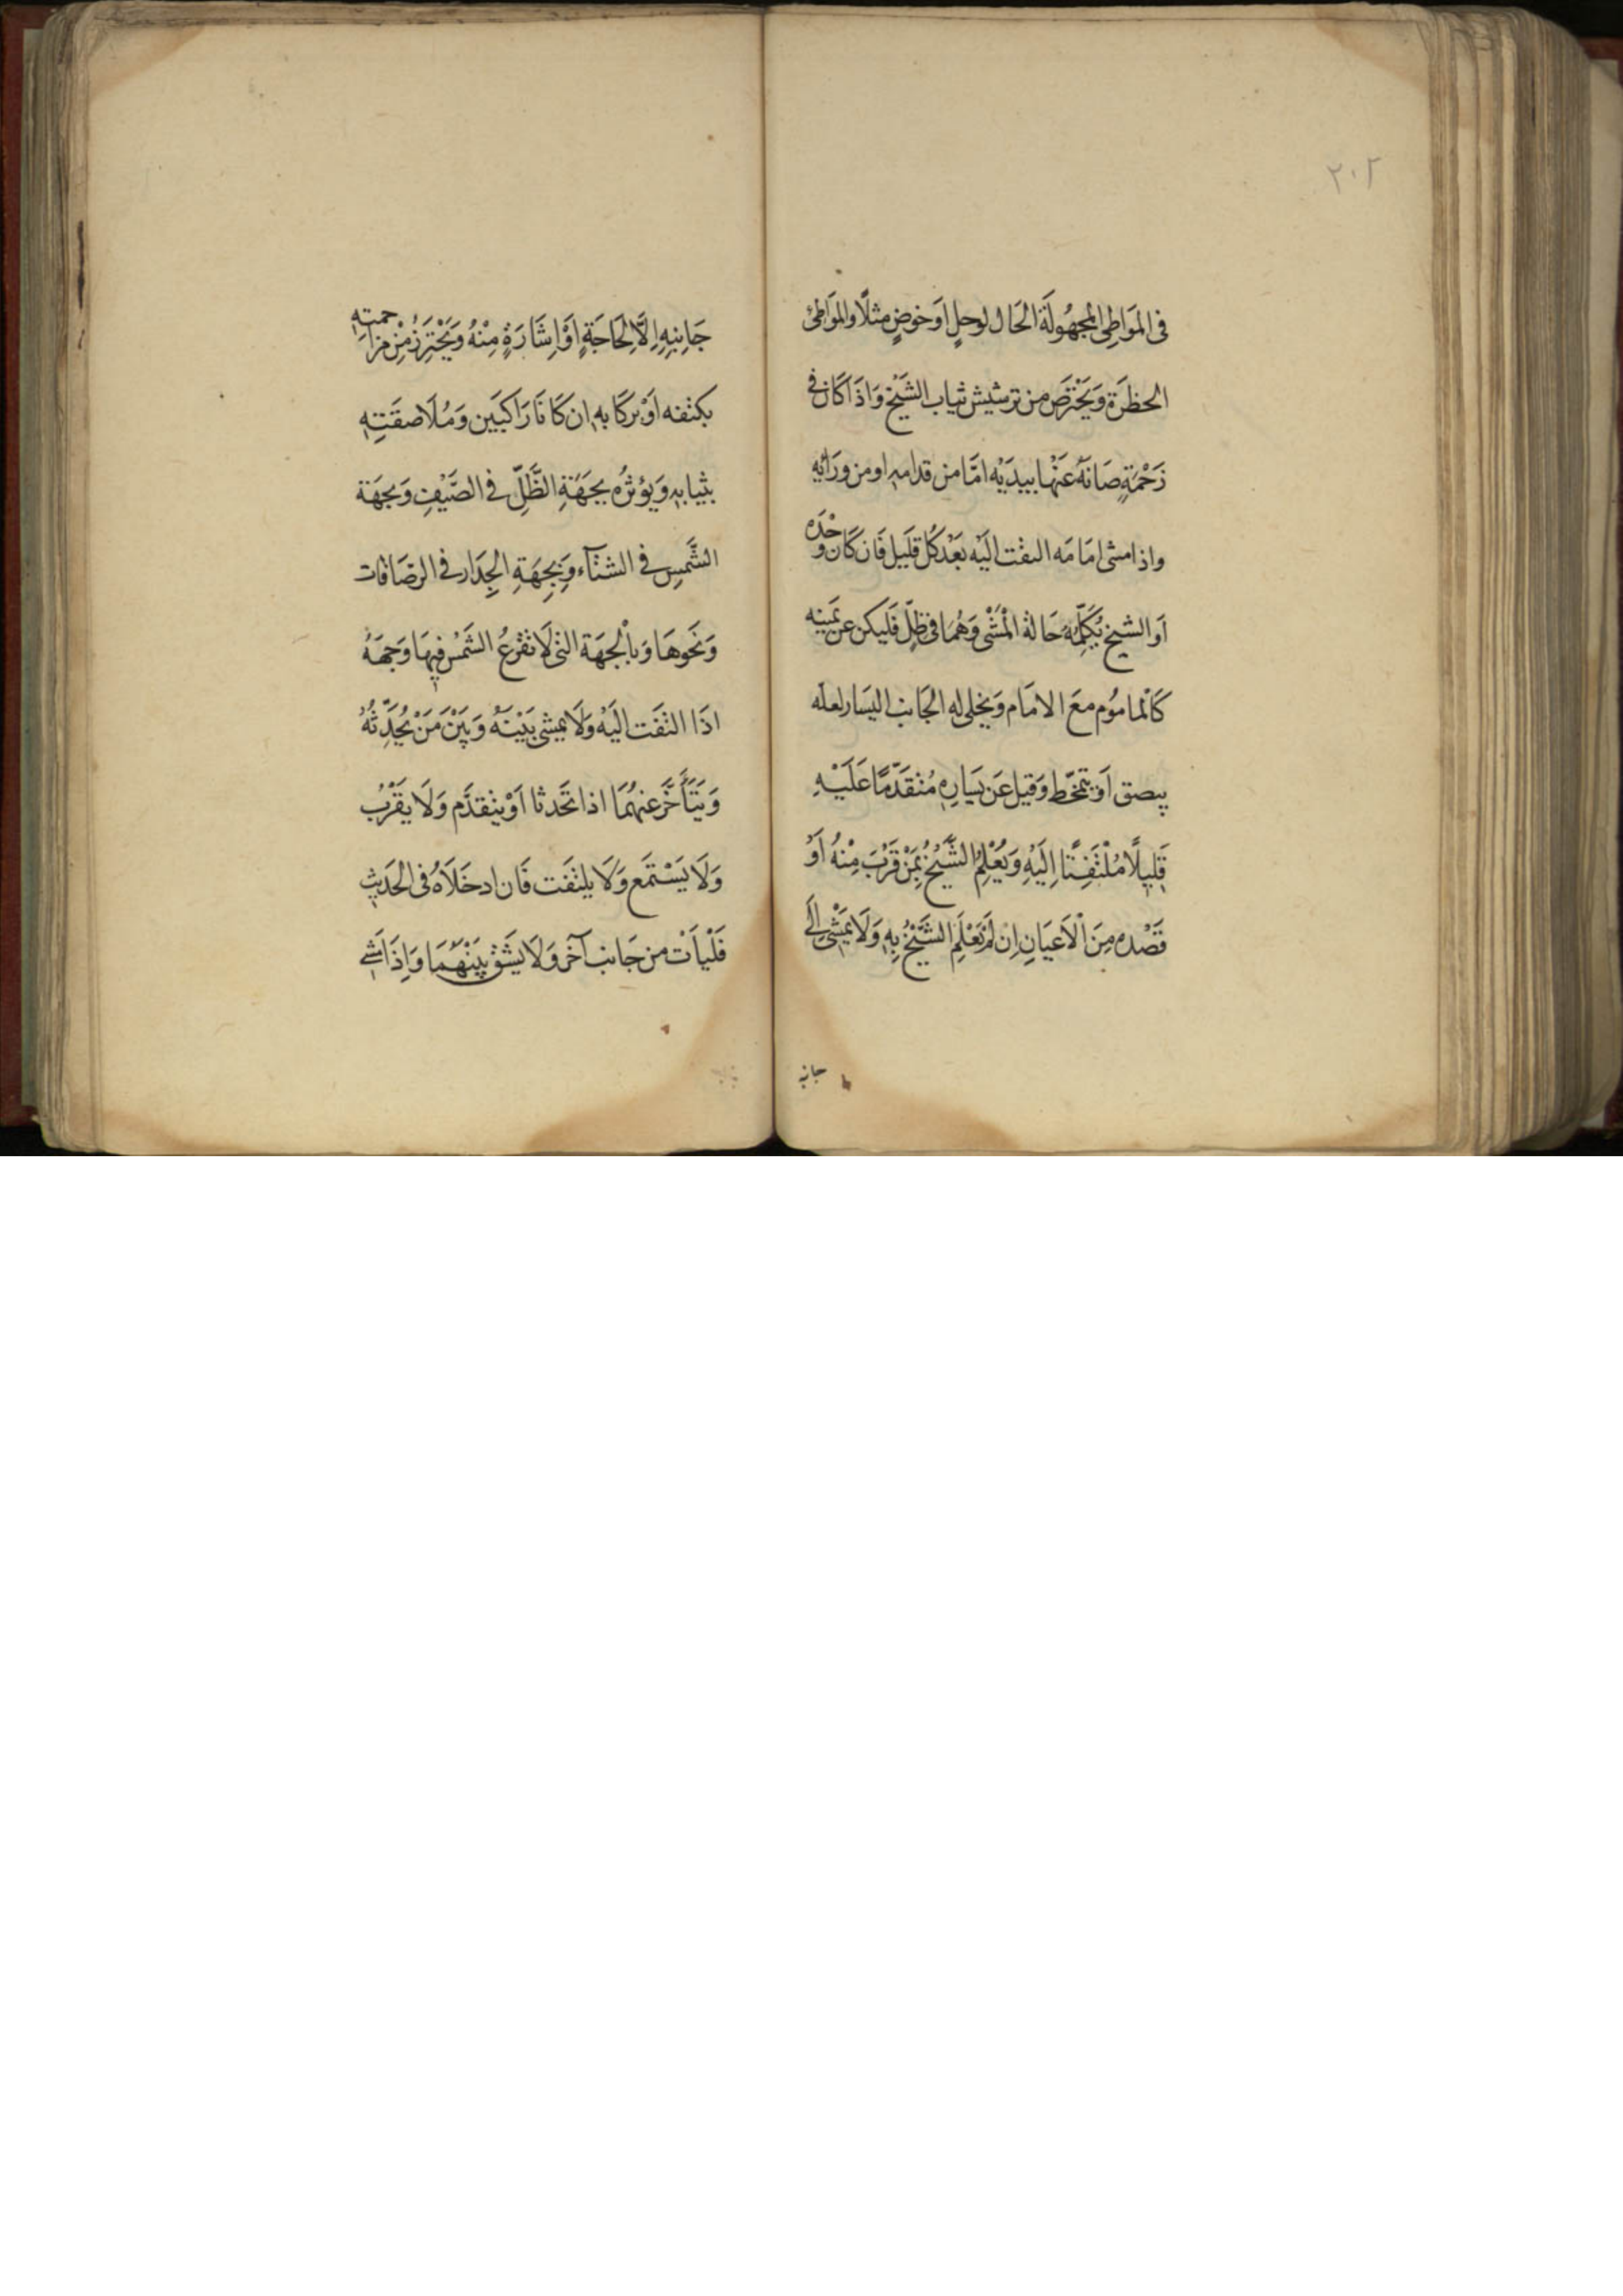 ٢٠٢
فى المَوَاطِى المجهُولَة الحَال لوحلٍ اوَ خوضٍ مثلًا والمَوَاطئ
الحظرَة وَيَحْتَرَصَ من ترشيش ثياب الشَيْخ وَاذَا كَان فى
زَحْمَةٍ صَانَهُ عَنْهَا بيدَيْه امَّا من قدامهِ اومن ورَائِهِ
واذا مشى امَامَه التفت الَيْه بَعْدَ كُل قَليل فَان كَان وَحْدَه
اَو الشيخ يُكَلِّمُهُ حَالة المْشَى وَهُمَا فى ظلٍّ فَليكن عن يَمينِه
كَالمامُوم معَ الامَام وَيخلى له الجَانب اليسَار لعله
يبصق اَو يتمخّط وَقيل عَن يَسَارِهِ مُتَقَدّمًا عَلَيْهِ
قَلِيلًا مُلْتَفِتًا اِلَيْهِ وَيُعْلِمُ الشَّيْخُ بِمَنْ قَرُبَ مِنْهُ اَوْ
قَصْدهِ مِنَ الْاَعيَانِ اِن لَمْ يَعْلَمِ الشَّيْخُ بِهِ وَلَا يَمْشى الَى
جانبه
جَانِبِهِ اِلَّا لِحَاجَةٍ اَوْ اِشَارَةٍ مِنْهُ وَيَحْتَرَزُ مِنْ مزاحمتهِ
بكتفه اَوْ بركَابهِ ان كَانَا رَاكبَين وَمُلَاصقَتِهِ
بثيابهِ وَيُؤثرُه بجهَةِ الظّلِّ فى الصَّيْفِ وَبجهَة
الشَّمسِ فى الشتآء وَبِجِهَةِ الجِدَار فى الرصَافات
وَنَحوهَا وَبالْجهَة التى لَا تقْرعُ الشَمْسُ فيهَا وَجهَهُ
اذَا التفَت الَيْه وَلَا يمشى بَيْنَهُ وَبَيْنَ مَنْ يُحَدِّثُهُ
وَيَتَأَخَّرَ عنهُمَا اذا تحَدثا اَوْ يتقدَّم وَلَا يقَرُبُ
وَلَا يَسْتَمَع وَلَا يلتفَت فَان ادخَلَاهُ فى الحَديثِ
فَلْيَأت من جَانب آخَر وَلَا يشَقْ بيَنْهُمَا وَاِذَا مَشى